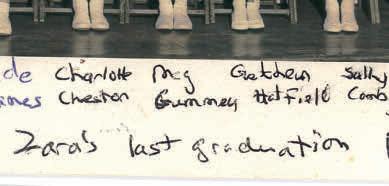 de Charlotte Meg Gretchen Sally
ames Cheston Gummey Hatfield Comb
Zara's last graduation